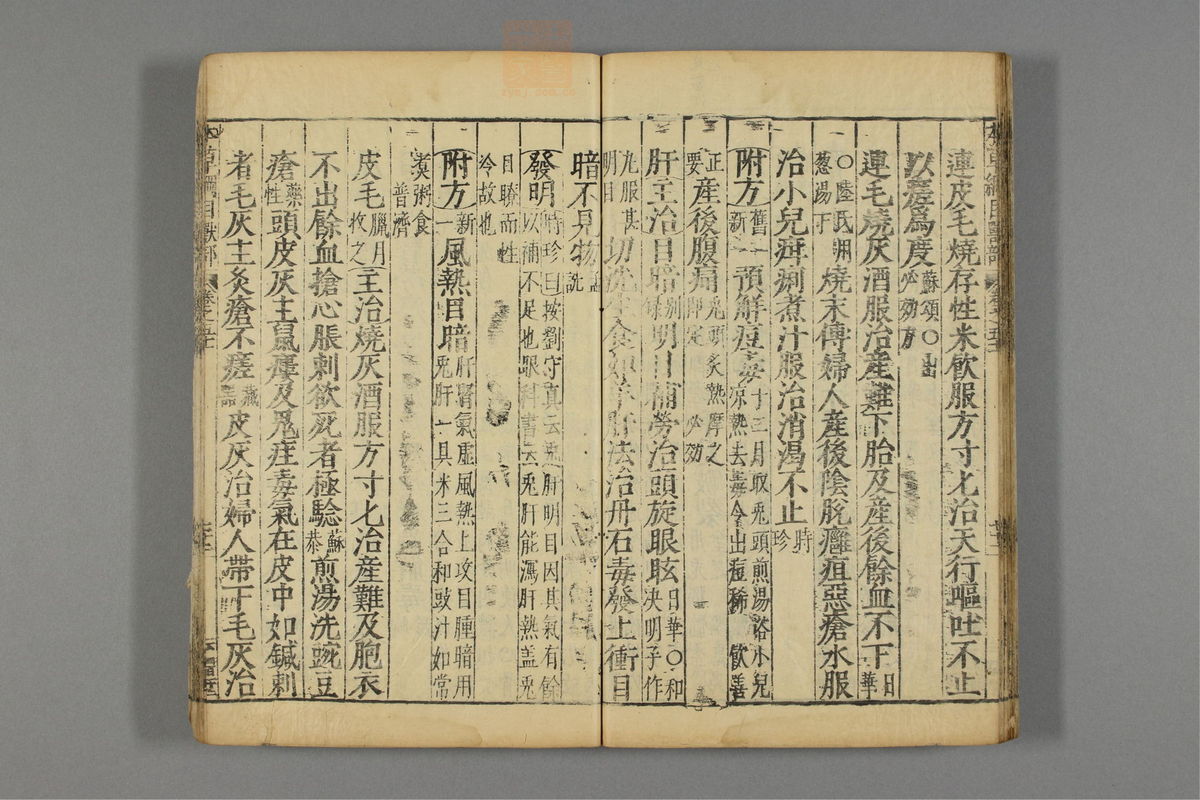 連皮毛燒存性米飲服方寸匕治天行嘔吐不止
以瘥爲度蘇頌○出必効方
連毛燒灰酒服治產難下胎及產後餘血不下日華
○陸氏用葱湯下燒末傅婦人產後陰脫癰疽惡瘡水服
治小兒疳痢煮汁服治消渴不止時珍
附方舊一新一預解痘毒十二月取兎頭煎湯浴小兒凉熱去毒令出痘稀飲善
正要產後腹痛兎頭炙熱摩之即定必効
肝主治目暗别錄明目補勞治頭旋眼眩日華○和決明子作
丸服甚明目切洗生食如羊肝法治丹石毒發上衝目
暗不見物孟詵
發明時珍曰按劉守真云兎肝明目因其氣有餘以補不足也眼科書云兎肝能瀉肝熱盖兎
目瞭而性冷故也
附方新一風熱目暗肝腎氣虛風熱上攻目腫暗用兎肝一具米三合和豉汁如常
煮粥食普濟
皮毛臘月收之主治燒灰酒服方寸匕治產難及胞衣
不出餘血搶心脹刺欲死者極驗蘇恭煎湯洗豌豆
瘡藥性頭皮灰主鼠瘻及鬼疰毒氣在皮中如鍼刺
者毛灰主灸瘡不瘥藏器皮灰治婦人帶下毛灰治